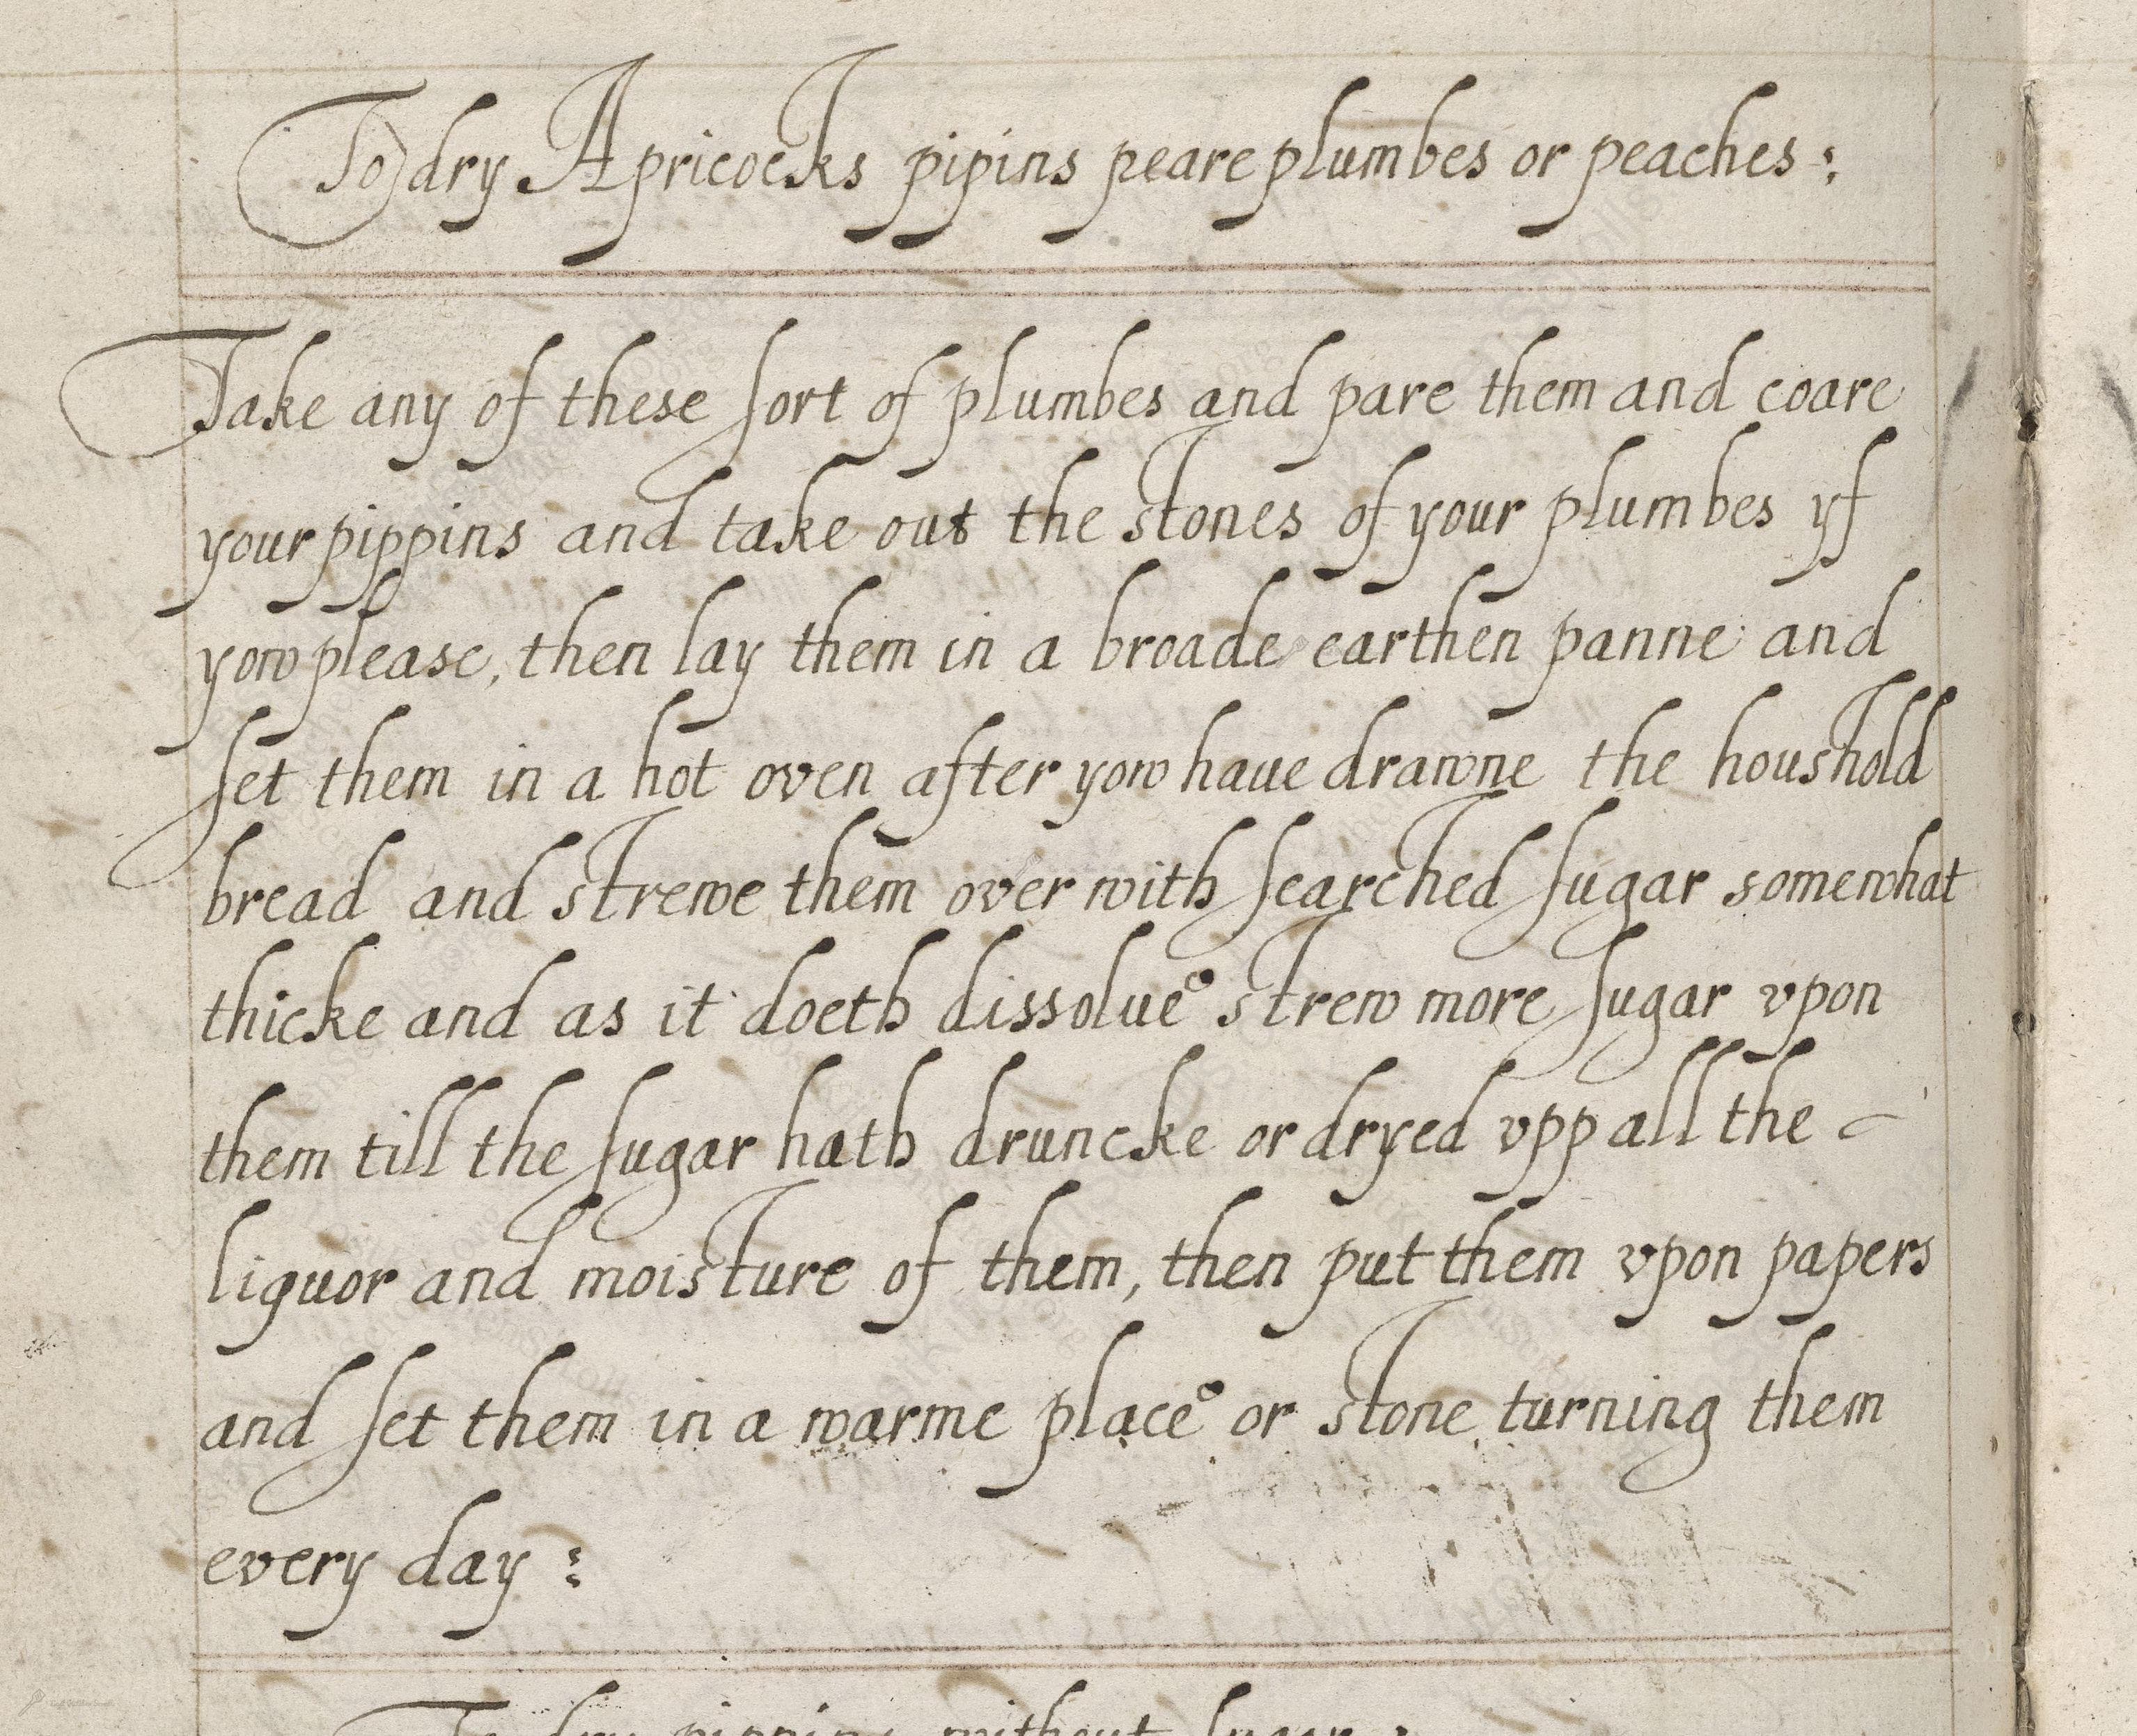 To dry Apricocks pipins peare plumbes or peaches:
Take any of these sort of plumbes and pare them and coare
your pippins and take out the stones of your plumbes yf
yow please, then lay them in a broade earthen panne and
set them in a hot oven after yow haue drawne the houshold
bread and strewe them over with searched sugar somewhat
thicke and as it doeth dissolue strew more sugar vpon
them till the sugar hath druncke or dryed vpp all the
liquor and moisture of them, then put them vpon papers
and set them in a warme place or stone turning them
every day:
To dry pippins without sugar: